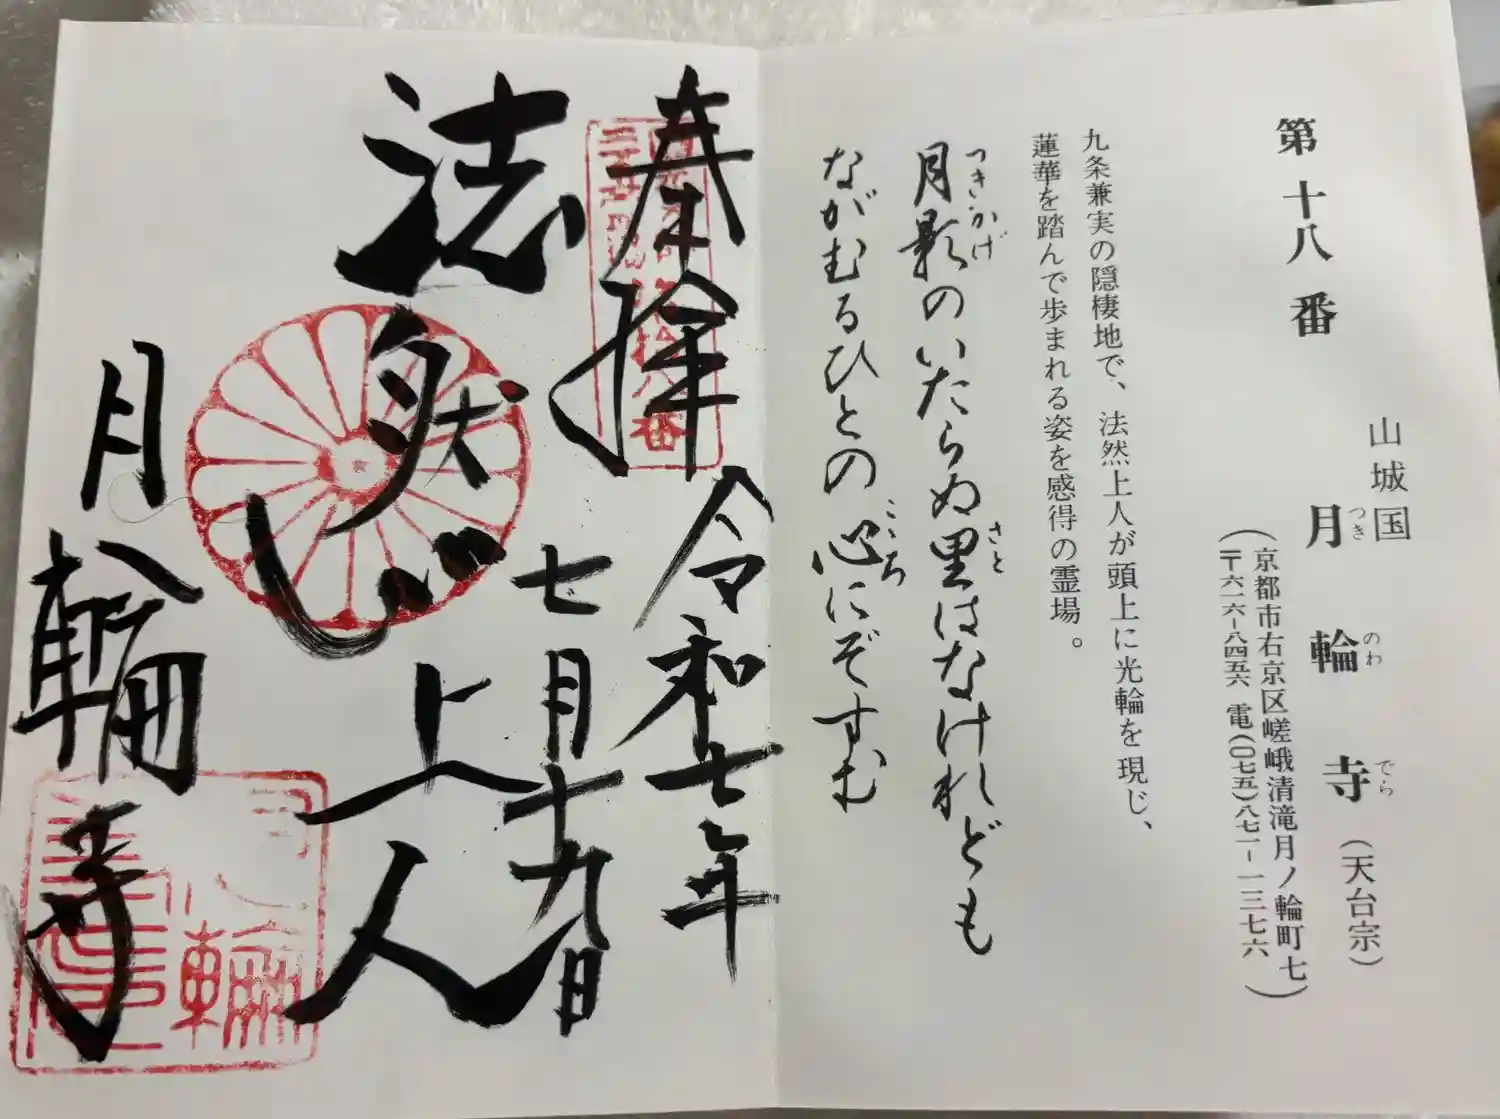 第十八番
山城国
月輪寺(天台宗)
つきのわでら
(京都市右京区嵯峨清滝月ノ輪町七
〒六一六-八四五六 電(〇七五)八七一-一三七六)
九条兼実の隠棲地で、法然上人が頭上に光輪を現じ、
蓮華を踏んで歩まれる姿を感得の霊場。
つきかげ さと
月影のいたらぬ里はなけれども
こころ
ながむるひとの心にぞすむ
奉拝
令和七年
七月十九日
法然上人
月輪寺